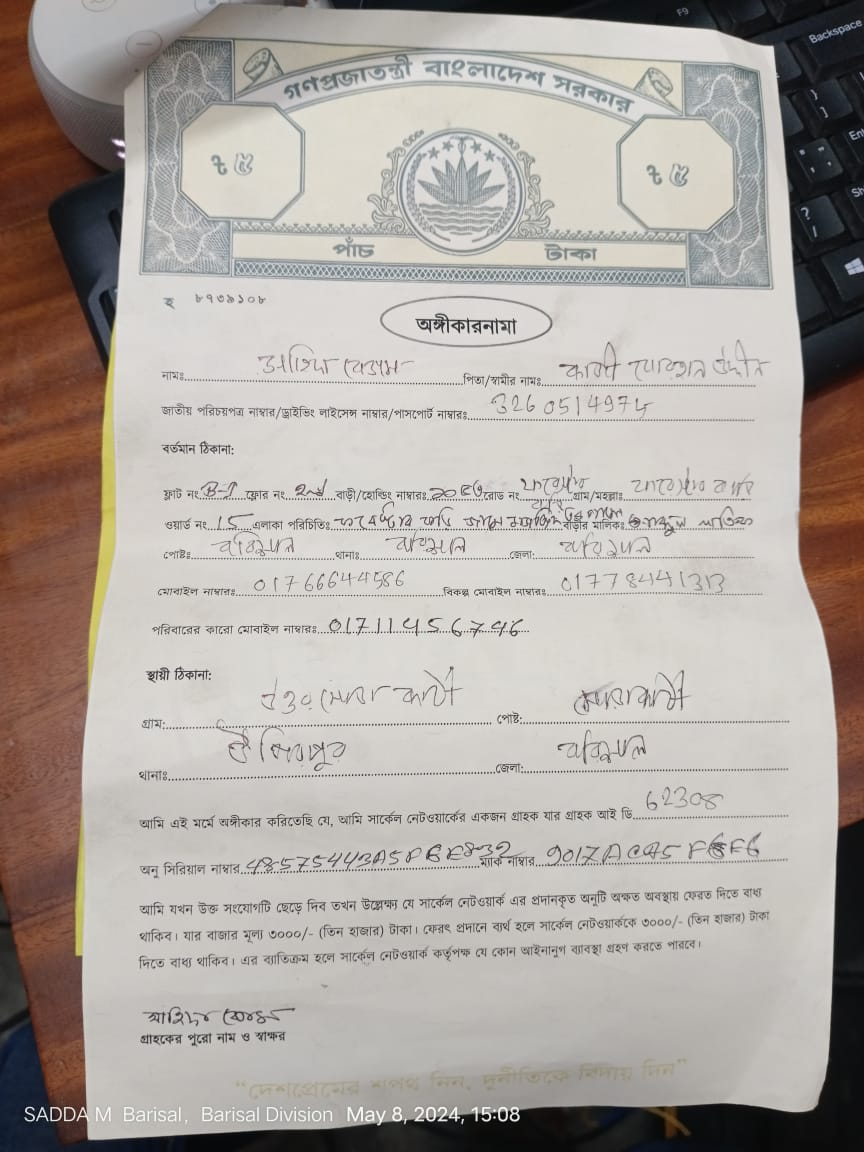 F9
Backspace
গণপ্রজাতন্ত্রী বাংলাদেশ সরকার
৳ ৫
৳ ৫
পাঁচ টাকা
হ ৮৭৩৯১০৮
অঙ্গীকারনামা
নামঃ বেগম পিতা/স্বামীর নামঃ কাজী
জাতীয় পরিচয়পত্র নাম্বার/ড্রাইভিং লাইসেন্স নাম্বার/পাসপোর্ট নাম্বারঃ 3260514974
বর্তমান ঠিকানা:
ফ্লাট নং B-1 ফ্লোর নং 2nd বাড়ী/হোল্ডিং নাম্বারঃ রোড নং গ্রাম/মহল্লাঃ
ওয়ার্ড নং 15 এলাকা পরিচিতিঃ বাড়ীর মালিকঃ
পোষ্টঃ বরিশাল থানাঃ বরিশাল জেলা: বরিশাল
মোবাইল নাম্বারঃ 01766644586 বিকল্প মোবাইল নাম্বারঃ 01778441313
পরিবারের কারো মোবাইল নাম্বারঃ 01711456746
স্থায়ী ঠিকানা:
গ্রাম: পোষ্ট:
থানাঃ জেলা: বরিশাল
আমি এই মর্মে অঙ্গীকার করিতেছি যে, আমি সার্কেল নেটওয়ার্কের একজন গ্রাহক যার গ্রাহক আই ডি 62308
অনু সিরিয়াল নাম্বার 48575443A5F6E832 ম্যাক নাম্বার
আমি যখন উক্ত সংযোগটি ছেড়ে দিব তখন উল্লেক্ষ্য যে সার্কেল নেটওয়ার্ক এর প্রদানকৃত অনুটি অক্ষত অবস্থায় ফেরত দিতে বাধ্য
থাকিব। যার বাজার মূল্য ৩০০০/- (তিন হাজার) টাকা। ফেরৎ প্রদানে ব্যর্থ হলে সার্কেল নেটওয়ার্ককে ৩০০০/- (তিন হাজার) টাকা
দিতে বাধ্য থাকিব। এর ব্যাতিক্রম হলে সার্কেল নেটওয়ার্ক কর্তৃপক্ষ যে কোন আইনানুগ ব্যাবস্থা গ্রহণ করতে পারবে।
গ্রাহকের পুরো নাম ও স্বাক্ষর
“দেশপ্রেমের শপথ নিন, দুর্নীতিকে বিদায় দিন”
SADDA M Barisal, Barisal Division May 8, 2024, 15:08